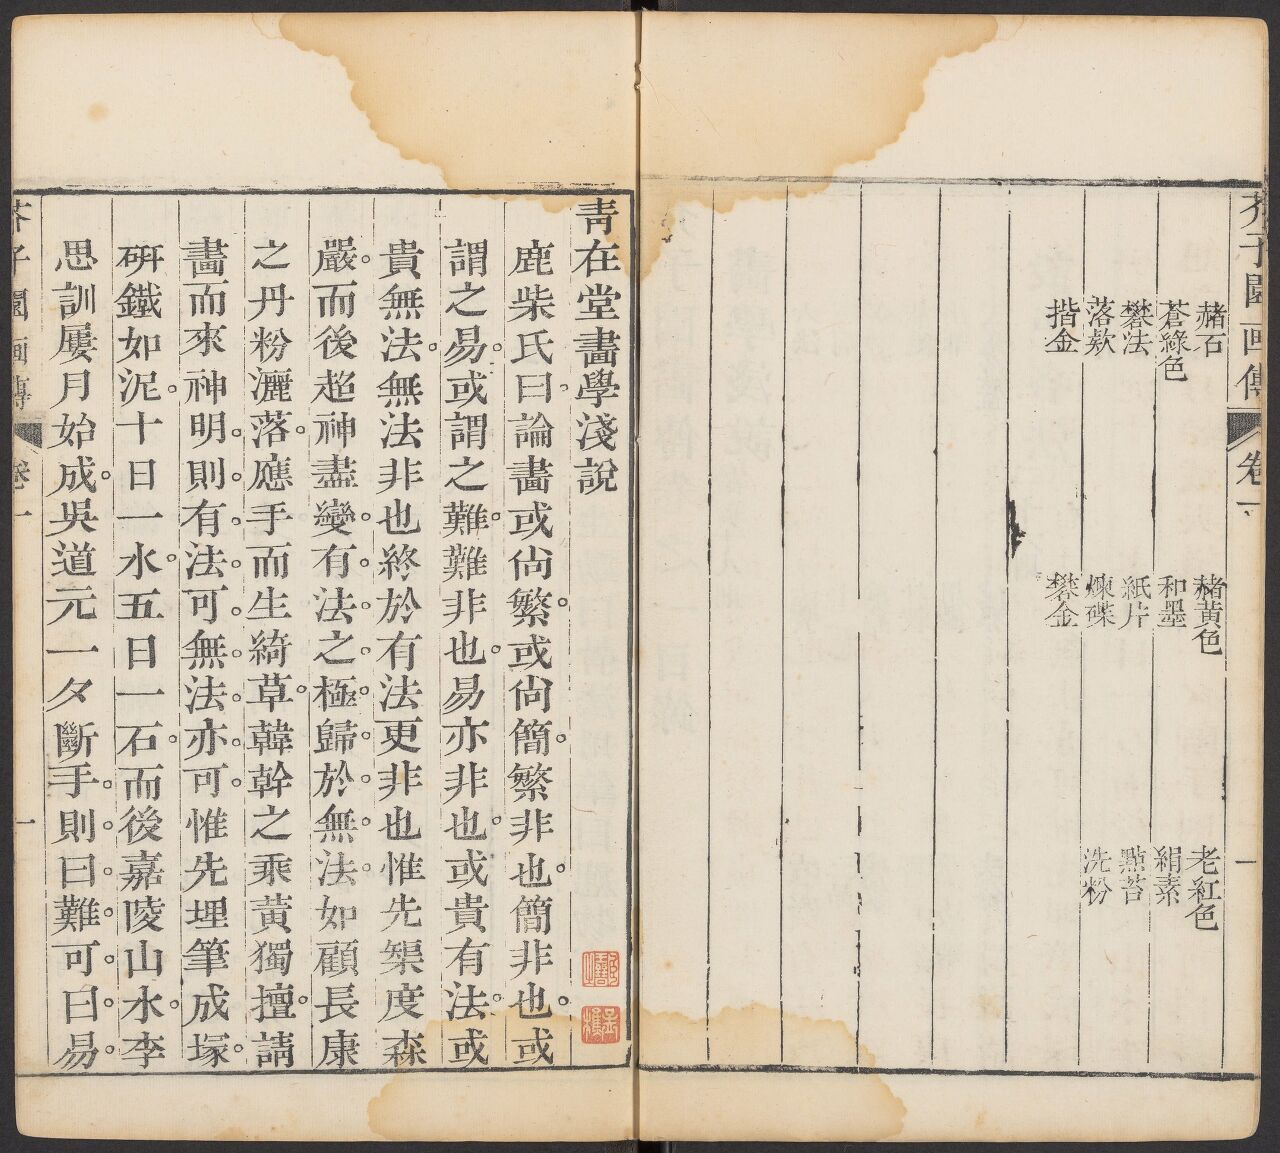 芥子園画傳 卷一 一
赭石 赭黃色 老紅色
蒼綠色 和墨 絹素
礬法 紙片 點苔
落款 煉碟 洗粉
揩金 礬金
青在堂畫學淺說
鹿柴氏曰論畫或尙繁或尙簡繁非也簡非也或
謂之易或謂之難難非也易亦非也或貴有法或
貴無法無法非也終於有法更非也惟先榘度森
嚴而後超神盡變有法之極歸於無法如顧長康
之丹粉灑落應手而生綺草韓幹之乘黃獨擅請
畫而來神明則有法可無法亦可惟先埋筆成塚
硏鐵如泥十日一水五日一石而後嘉陵山水李
思訓屢月始成吳道元一夕斷手則曰難可曰易
芥子園画傳 卷一 一